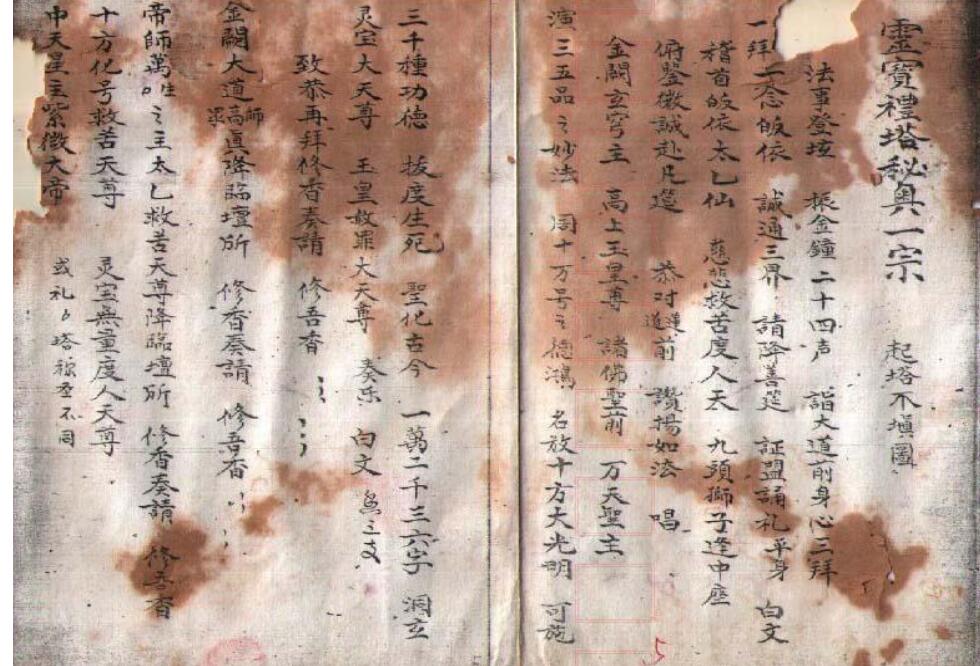 靈寶禮塔秘奧一宗 起塔不填圖
法事登坛 振金鐘二十四声 詣大道前身心三拜
一拜一念皈依 誠通三界 請降善筵 証盟誦礼平身 白文
稽首皈依太乙仙 慈悲救苦度人天 九頭獅子逢中座
俯鑒微誠赴凡筵 恭对道蓮前 讚揚如法 唱
金闕玄穹主 高上玉皇尊 諸佛聖前 万天聖主
演三五品之妙法 周十万号之德鴻 名放十方大光明 可施
三千種功德 拔度生死 聖化古今 一萬二千三六字 洞玄
灵宝大天尊 玉皇赦罪大天尊 奏乐 白文
致恭再拜修香奏請 修吾香
金闕大道高真降臨壇所 修香奏請 修吾香
帝師萬生之主太乙救苦天尊降臨壇所 修香奏請 修吾香
十方化号救苦天尊 灵宝無量度人天尊
中天星主紫微大帝 或礼塔 不同